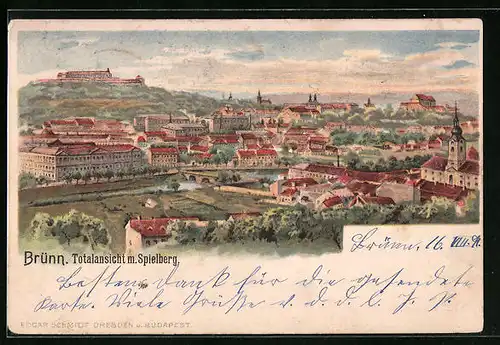 Brünn. Totalansicht m. Spielberg.
Brünn, 16. VIII.
Besten Dank für die gesendete
Karte. Viele Grüße v. d. d. l. J. P.
EDGAR SCHMIDT, DRESDEN u. BUDAPEST.